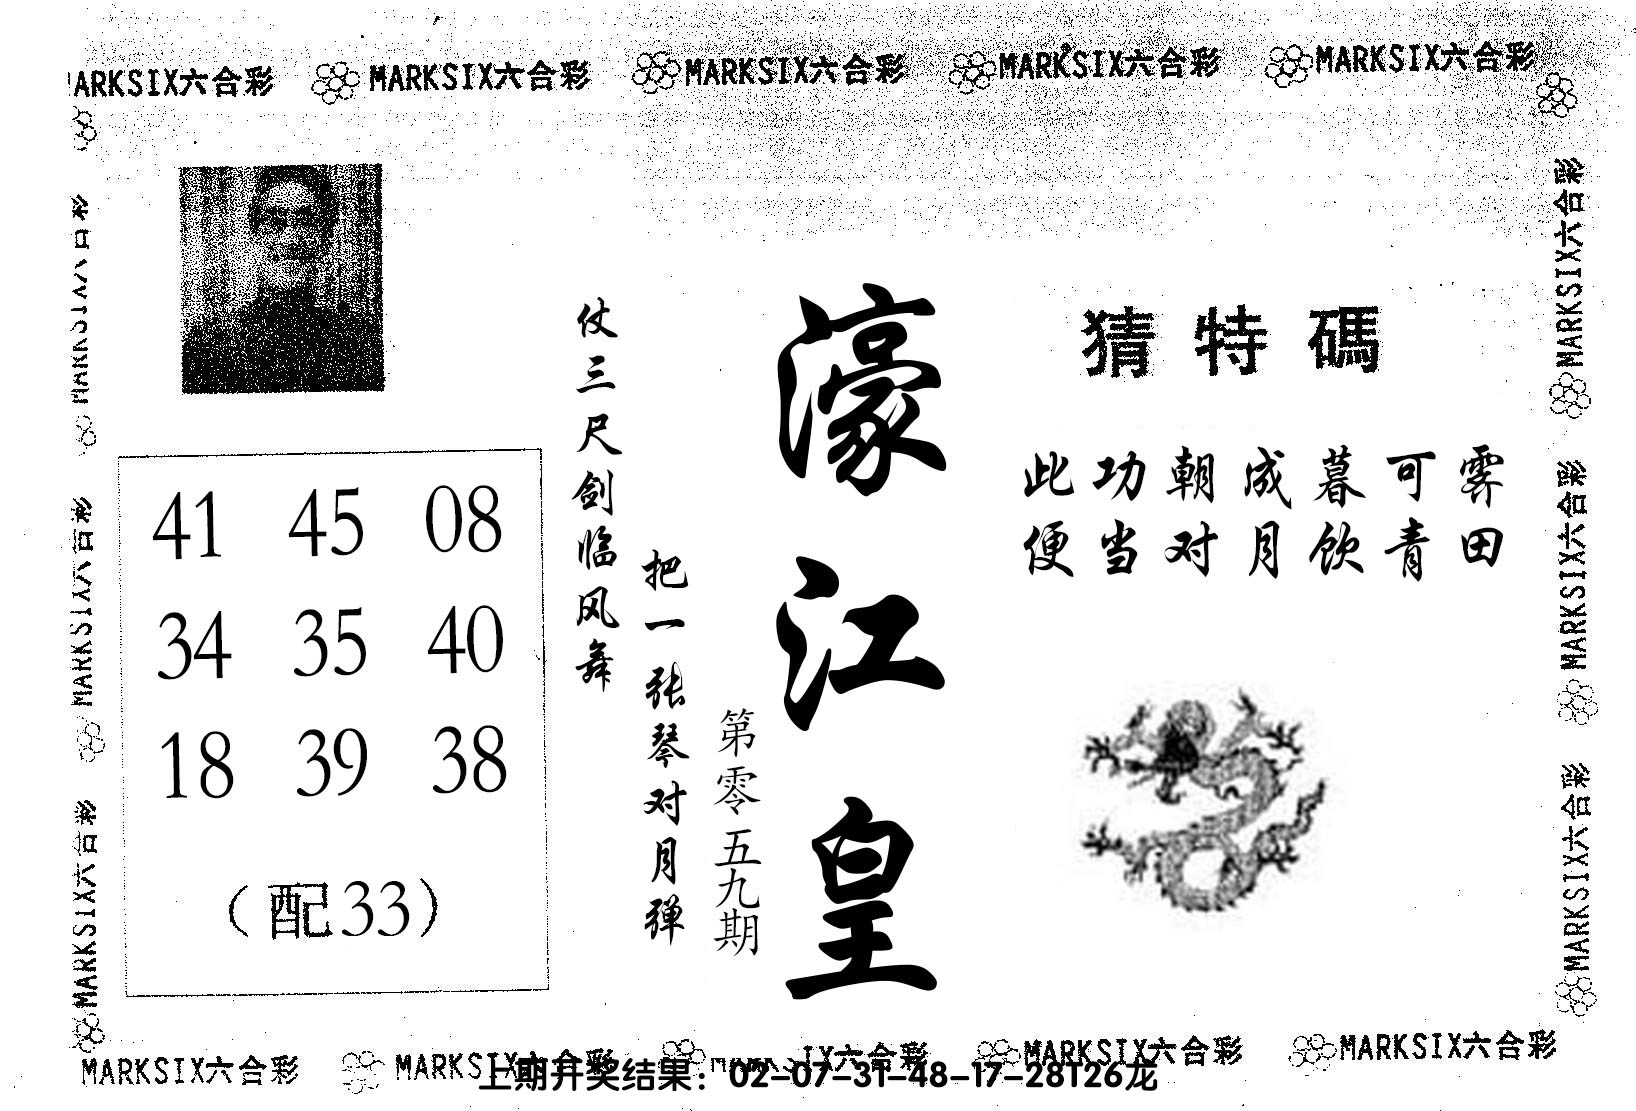 MARKSIX六合彩 MARKSIX六合彩 MARKSIX六合彩 MARKSIX六合彩 MARKSIX六合彩
猜特碼
此功朝成暮可霁
便当对月饮青田
濠江皇
第零五九期
仗三尺剑临风舞
把一张琴对月弹
41 45 08
34 35 40
18 39 38
（配33）
MARKSIX六合彩
MARKSIX六合彩
MARKSIX六合彩
MARKSIX六合彩
MARKSIX六合彩
MARKSIX六合彩
MARKSIX六合彩 MARKSIX六合彩 MARKSIX六合彩 MARKSIX六合彩 MARKSIX六合彩
上期开奖结果：02-07-31-48-17-28T26龙